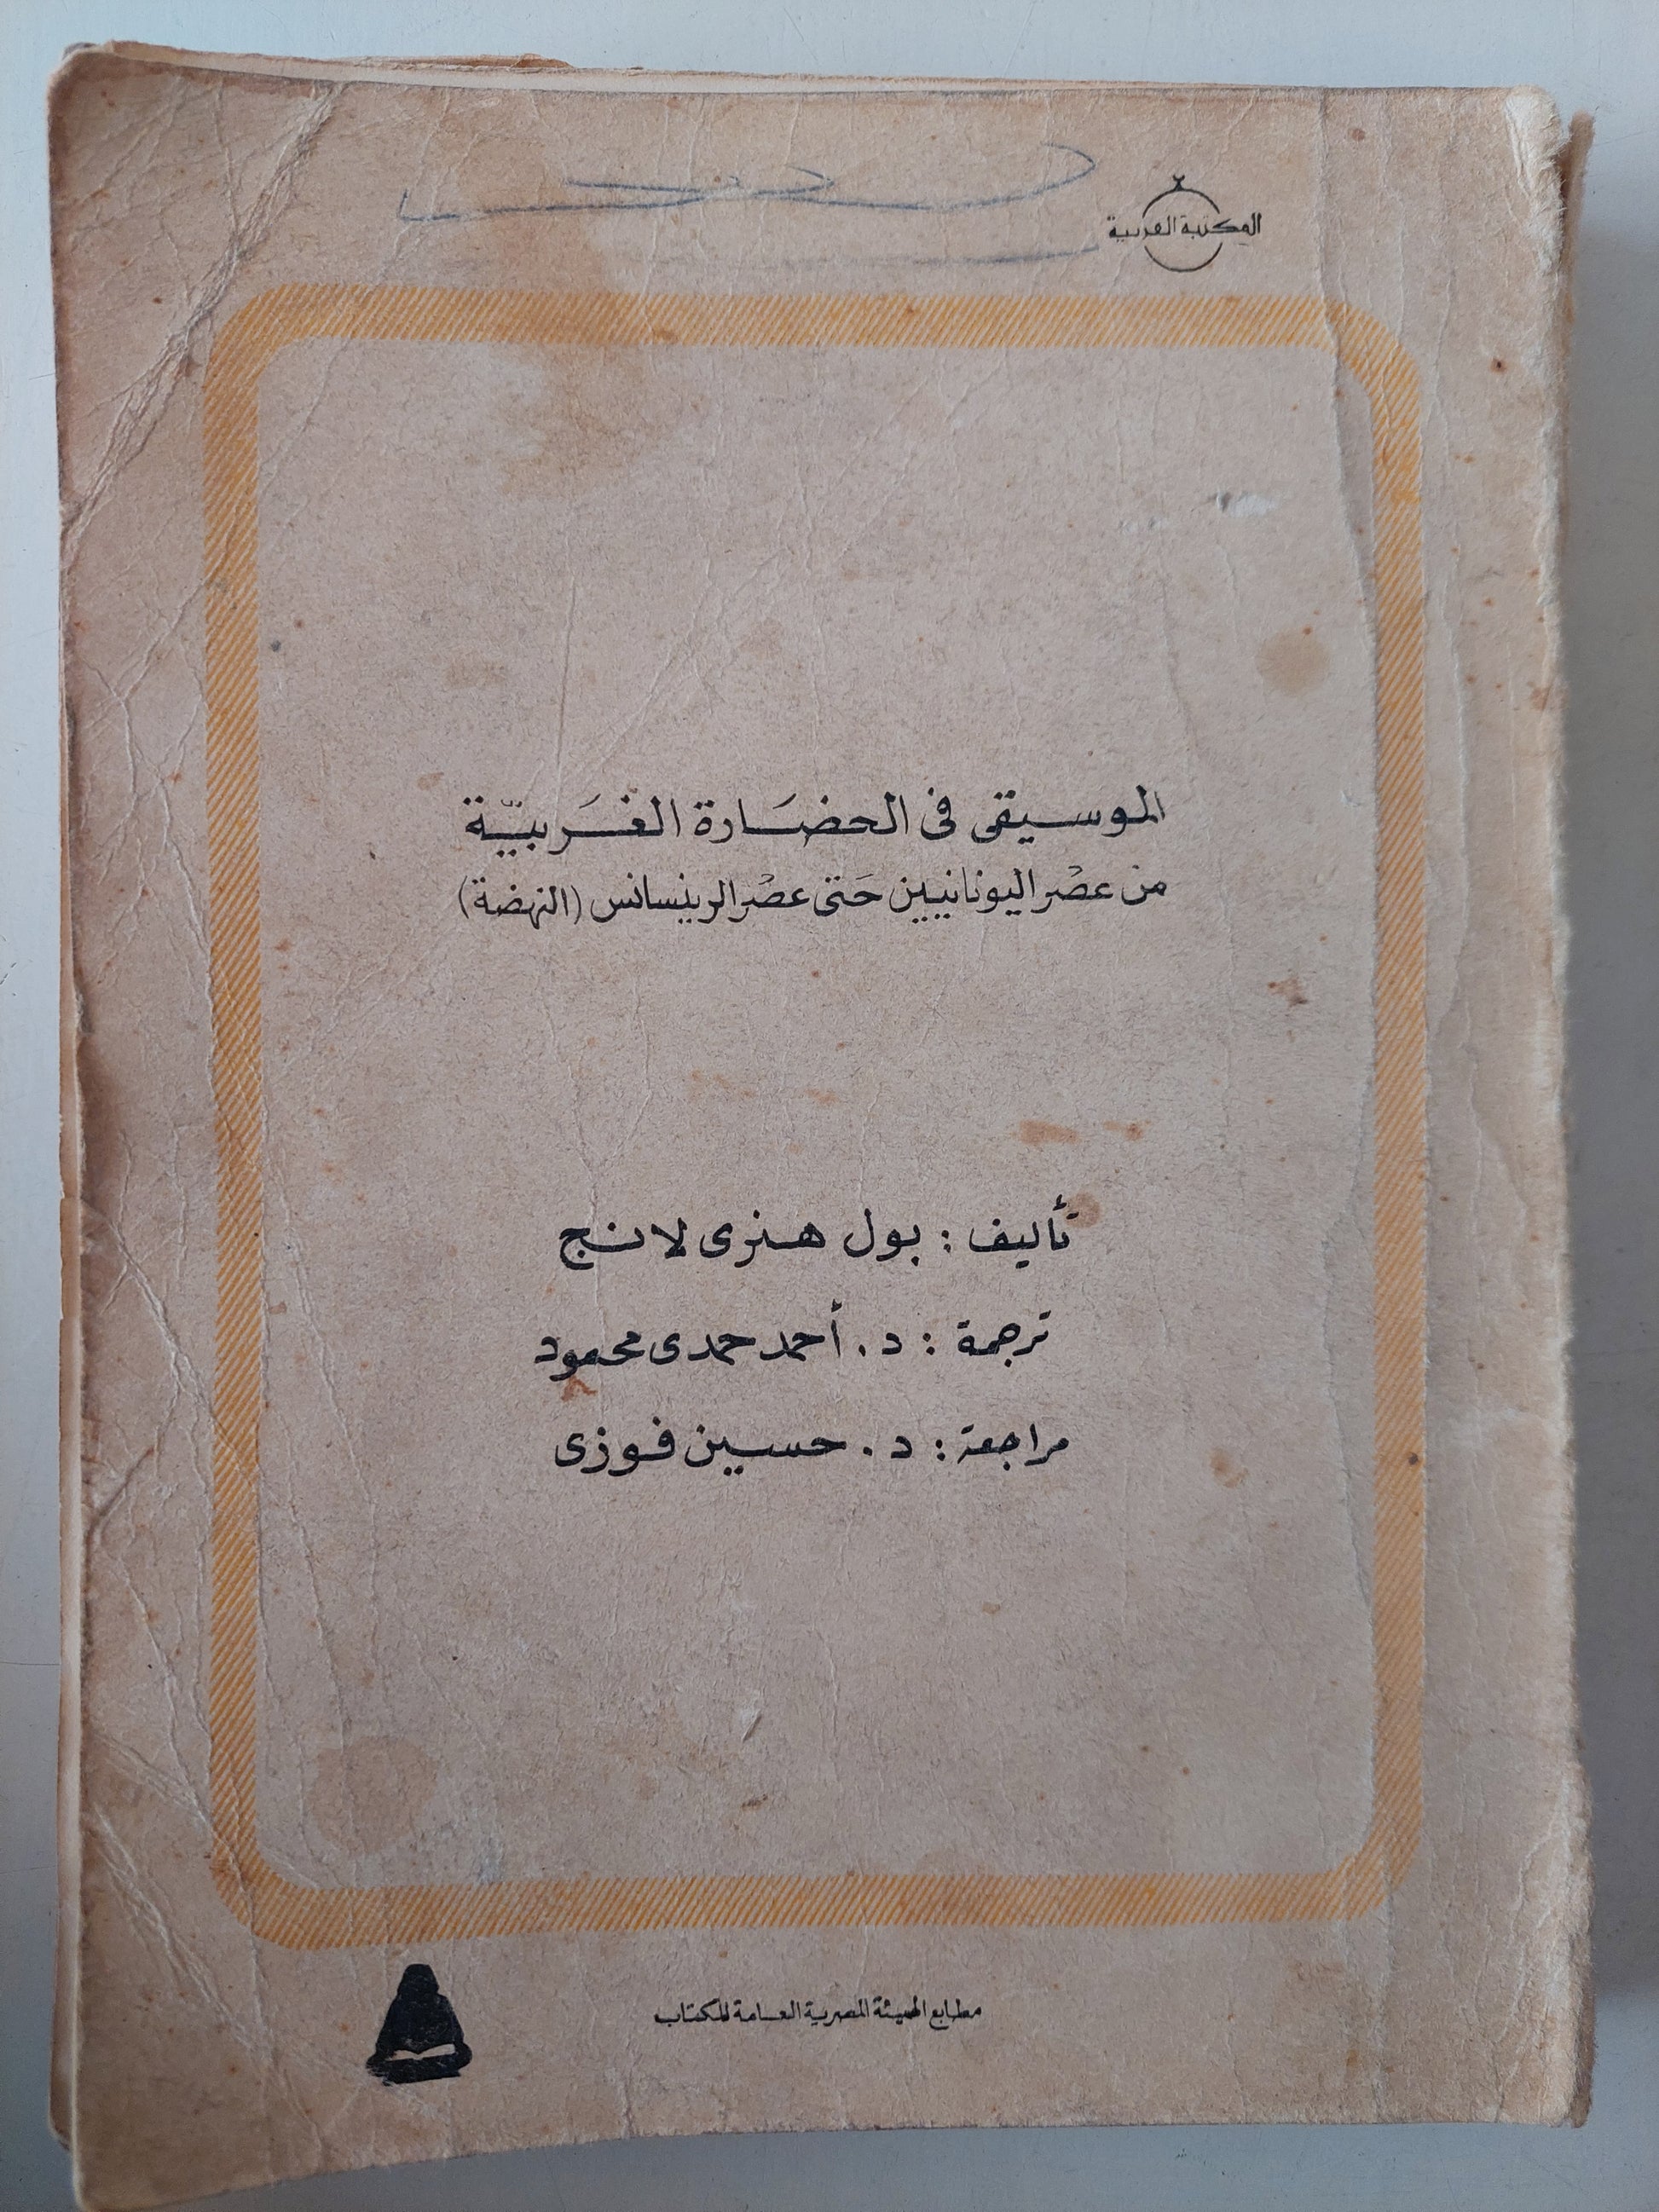 المكتبة العربية
الموسيقى فى الحضَارة الغَربيّة
من عصْر اليونانيين حَتى عصْر الرينسانس (النهضة)
تأليف : بول هنرى لانج
ترجمة : د . أحمد حمدى محمود
مراجعة : د . حسين فوزى
مطابع الهيئة المصرية العامة للكتاب